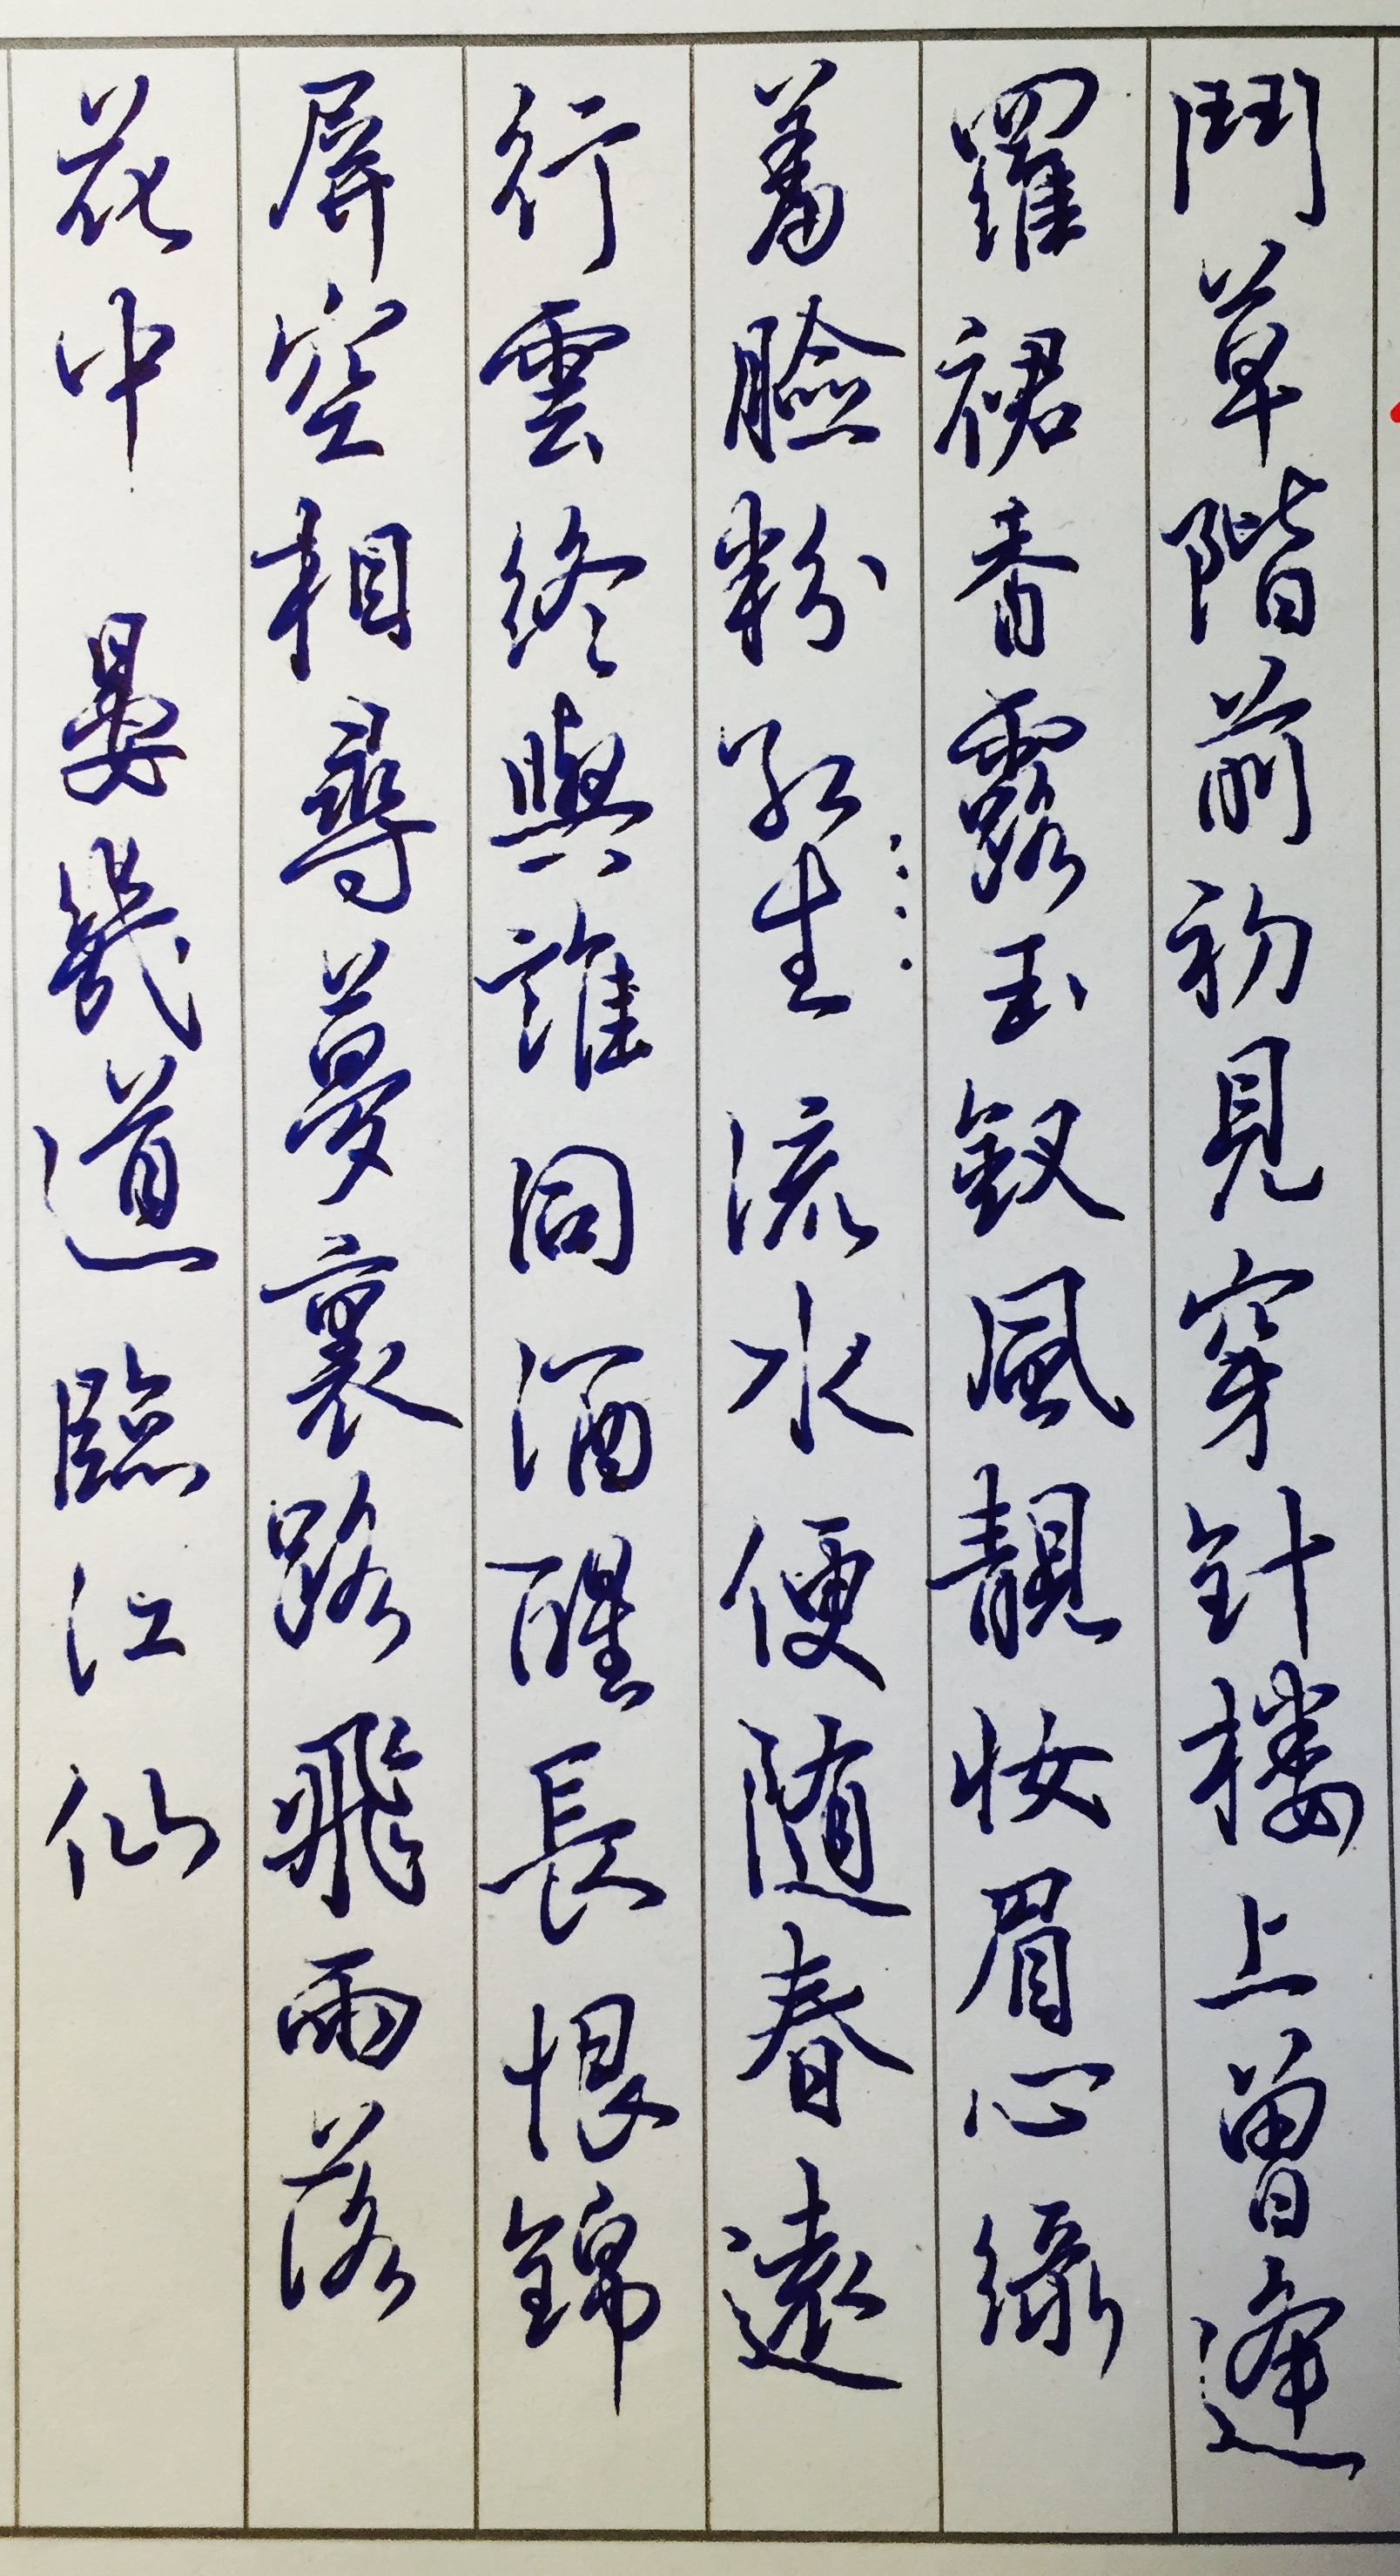 鬥草階前初見穿針樓上曾逢
羅裙香露玉釵風靚妝眉心
羞臉粉紅生流水便随春遠
行雲終與誰同酒醒長恨錦
屏空相尋夢裏路飛雨落
花中 晏幾道 臨江仙